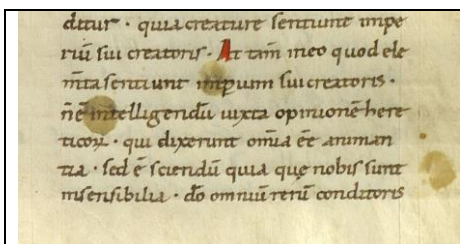 ditur · quia creature sentiunt impe
riū sui creatoris · At tam̄ in eo quod ele
m̄ta sentiunt imꝑium sui creatoris ·
n̄ ē intelligendū iuxta opinionē here
ticoꝝ · qui dixerunt om̄ia eē animan
tia · sed ē sciendū quia quę nobis sunt
insensibilia · dō omniū rerū conditoris